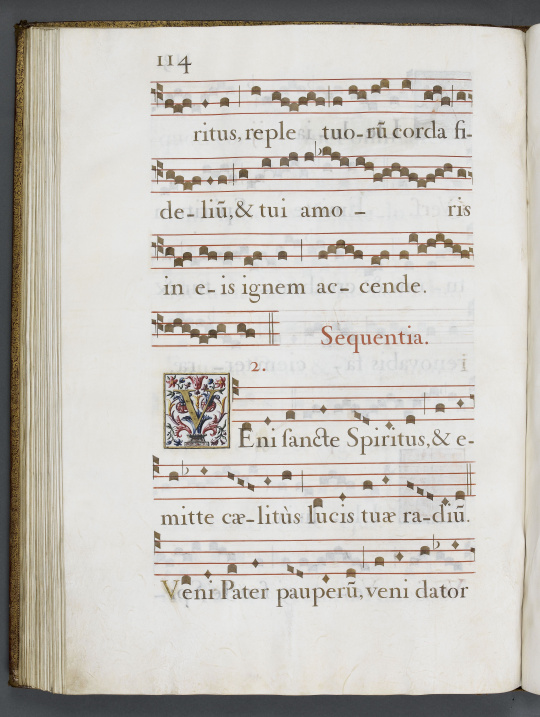 114
ritus, reple tuo-rū corda fi-
de-liū, & tui amo - ris
in e-is ignem ac-cende.
Sequentia.
2.
VEni ſancte Spiritus, & e-
mitte cæ-litùs lucis tuæ ra-diū.
Veni Pater pauperū, veni dator